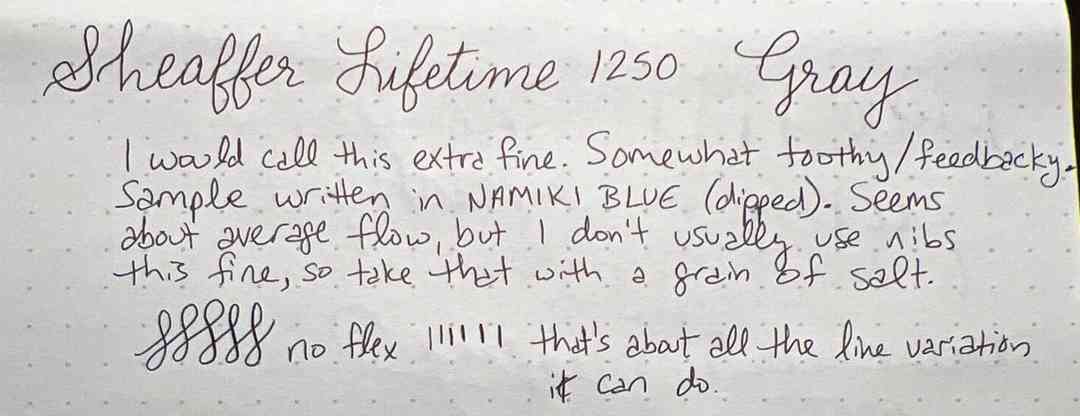 Sheaffer Lifetime 1250 Gray
I would call this extra fine. Somewhat toothy/feedbacky.
Sample written in NAMIKI BLUE (dipped). Seems
about average flow, but I don't usually use nibs
this fine, so take that with a grain of salt.
no flex that's about all the line variation
it can do.